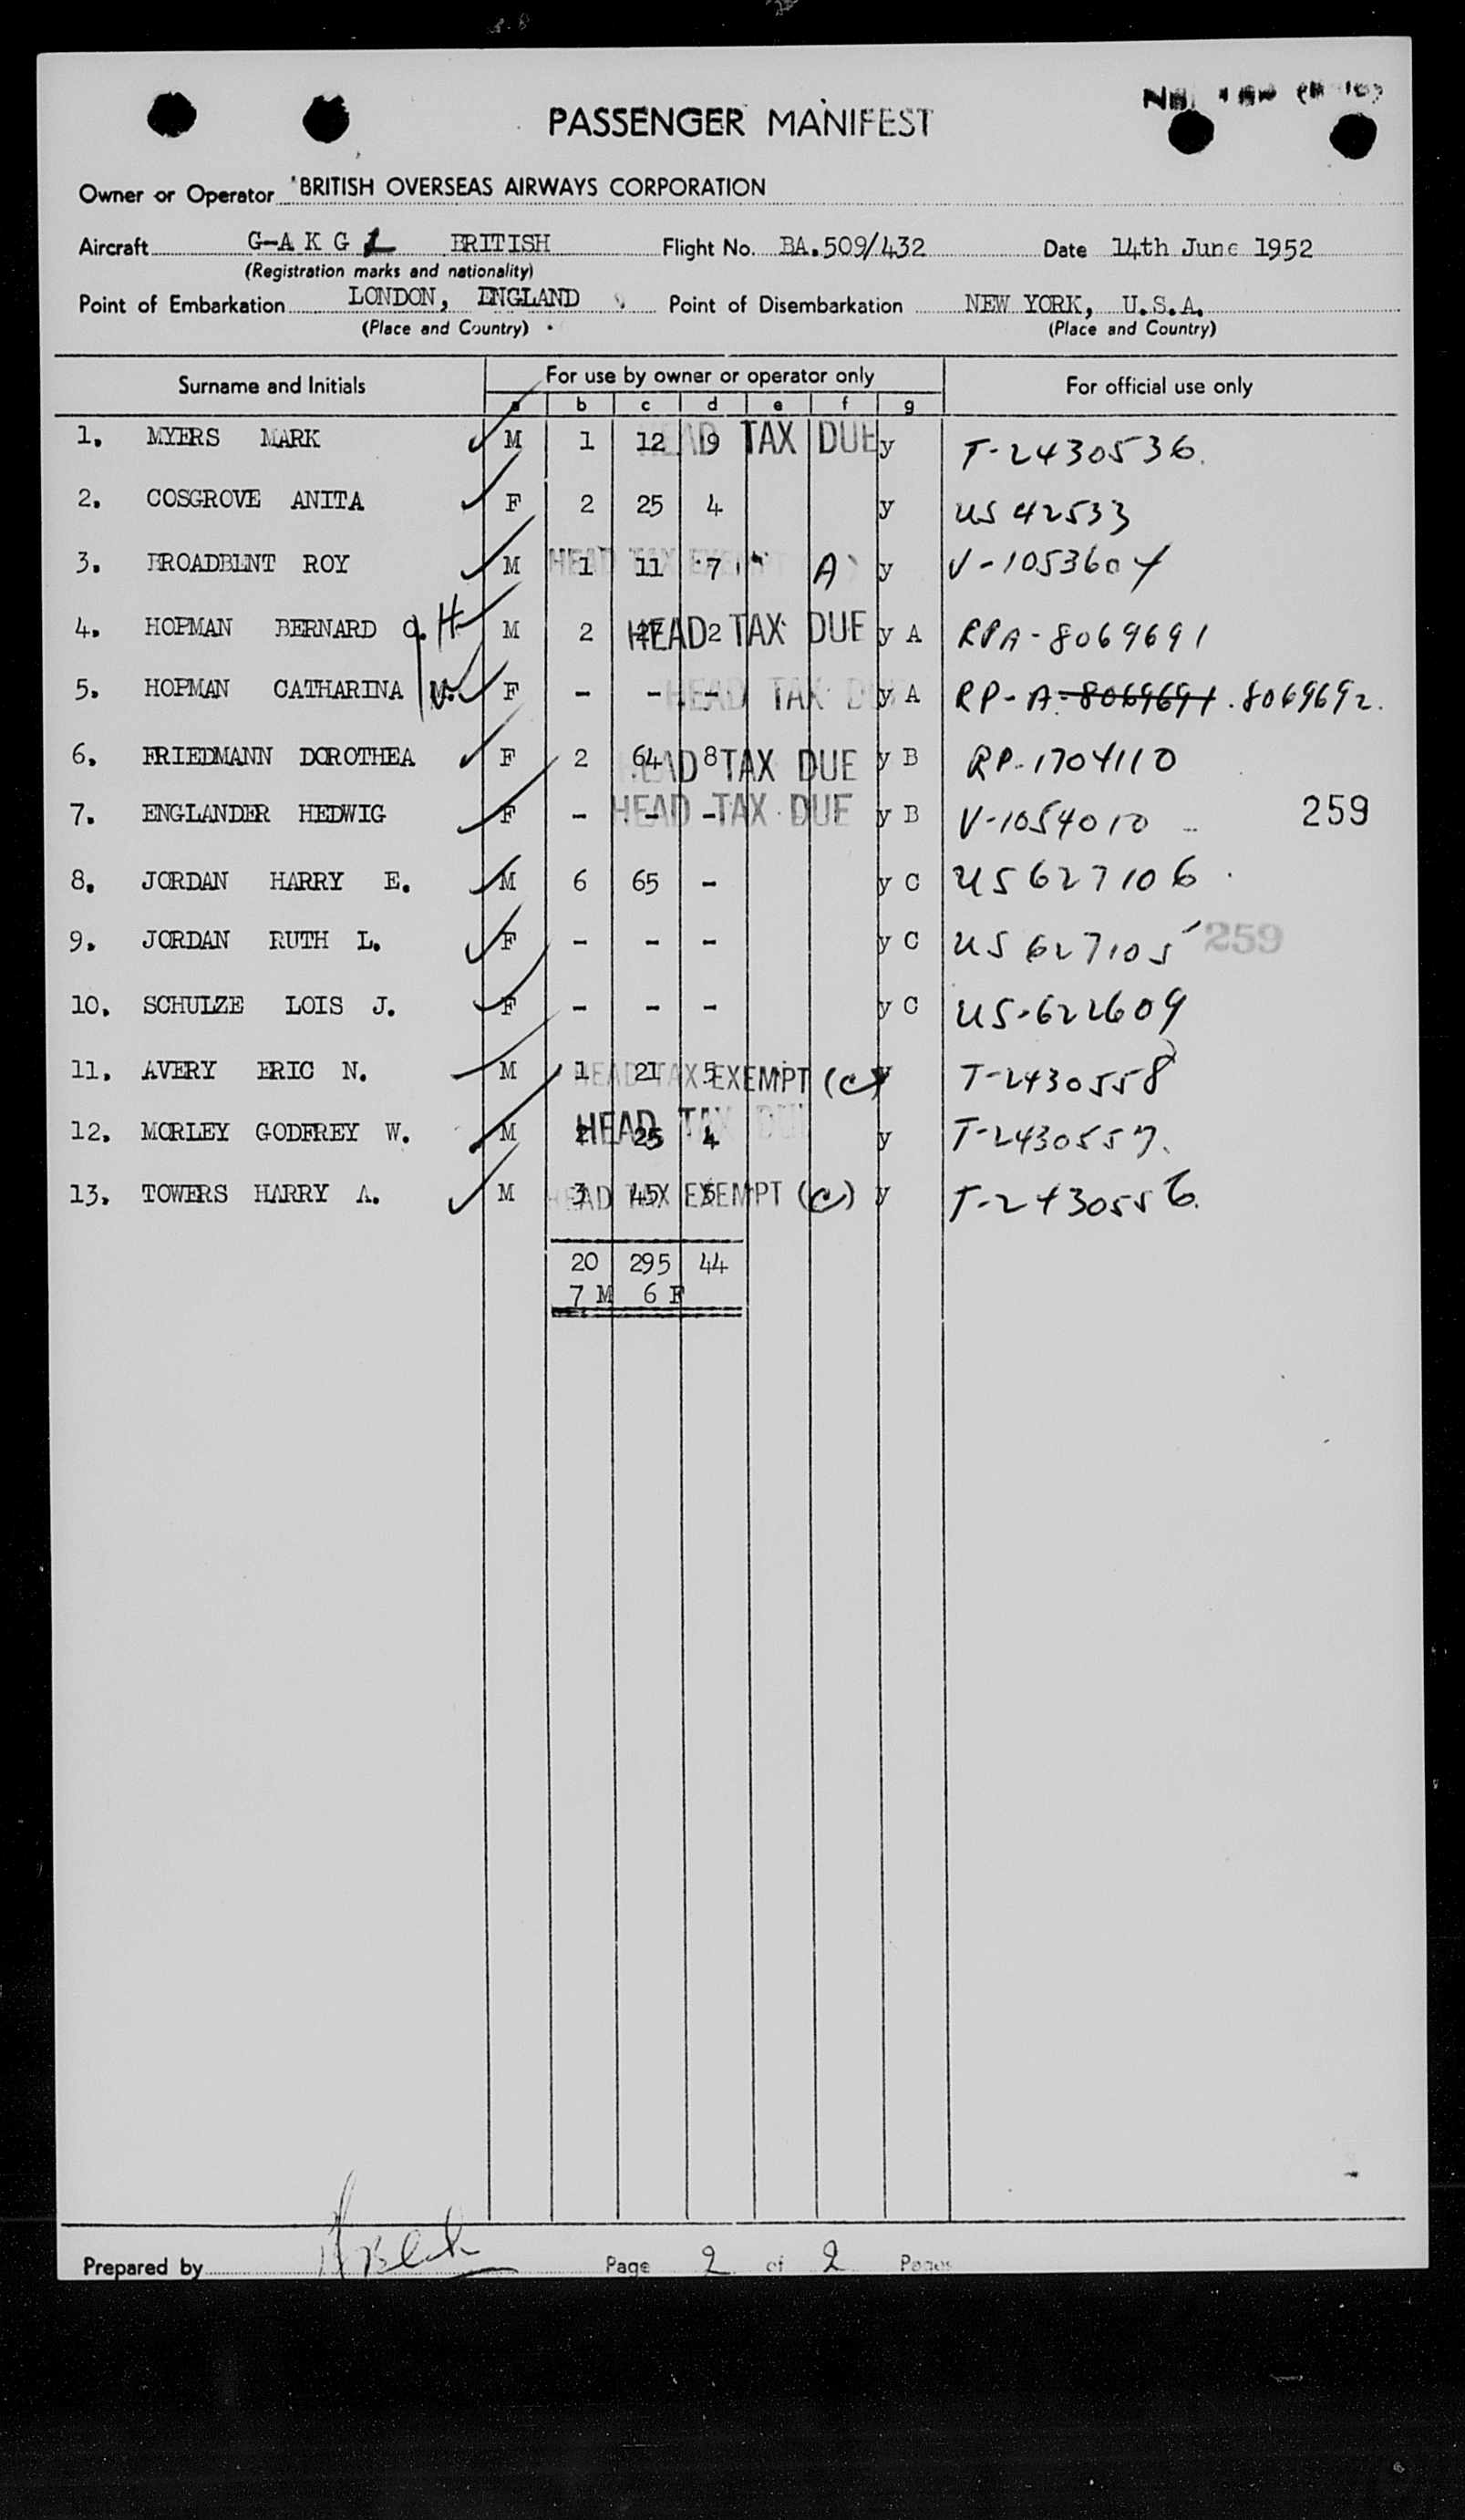 PASSENGER MANIFEST
Owner or Operator BRITISH OVERSEAS AIRWAYS CORPORATION
Aircraft G-A K G L BRITISH Flight No. BA.509/432 Date 14th June 1952
(Registration marks and nationality)
Point of Embarkation LONDON, ENGLAND Point of Disembarkation NEW YORK, U.S.A.
(Place and Country) (Place and Country)
Surname and Initials For use by owner or operator only For official use only
a b c d e f g
1. MYERS MARK M 1 12 9 HEAD TAX DUE y T-2430536.
2. COSGROVE ANITA F 2 25 4 y US 42533
3. BROADBENT ROY M 1 11 7 HEAD TAX EXEMPT A y V-1053604
4. HOPMAN BERNARD g.H. M 2 27 2 HEAD TAX DUE y A RPA-8069691
5. HOPMAN CATHARINA M. F - - - HEAD TAX D y A RP-A-8069691.8069692.
6. FRIEDMANN DOROTHEA F 2 64 8 HEAD TAX DUE y B RP-1704110
7. ENGLANDER HEDWIG F - - - HEAD TAX DUE y B V-1054010 259
8. JORDAN HARRY E. M 6 65 - y C US 627106
9. JORDAN RUTH L. F - - - y C US 627105 259
10. SCHULZE LOIS J. F - - - y C US-622609
11. AVERY ERIC N. M 1 21 5 HEAD TAX EXEMPT (C) y T-2430558
12. MORLEY GODFREY W. M 2 25 4 HEAD TAX DUE y T-2430557.
13. TOWERS HARRY A. M 3 45 5 HEAD TAX EXEMPT (C) y T-2430556.
20 295 44
7 M 6 F
Prepared by Page 2 of 2 Pages